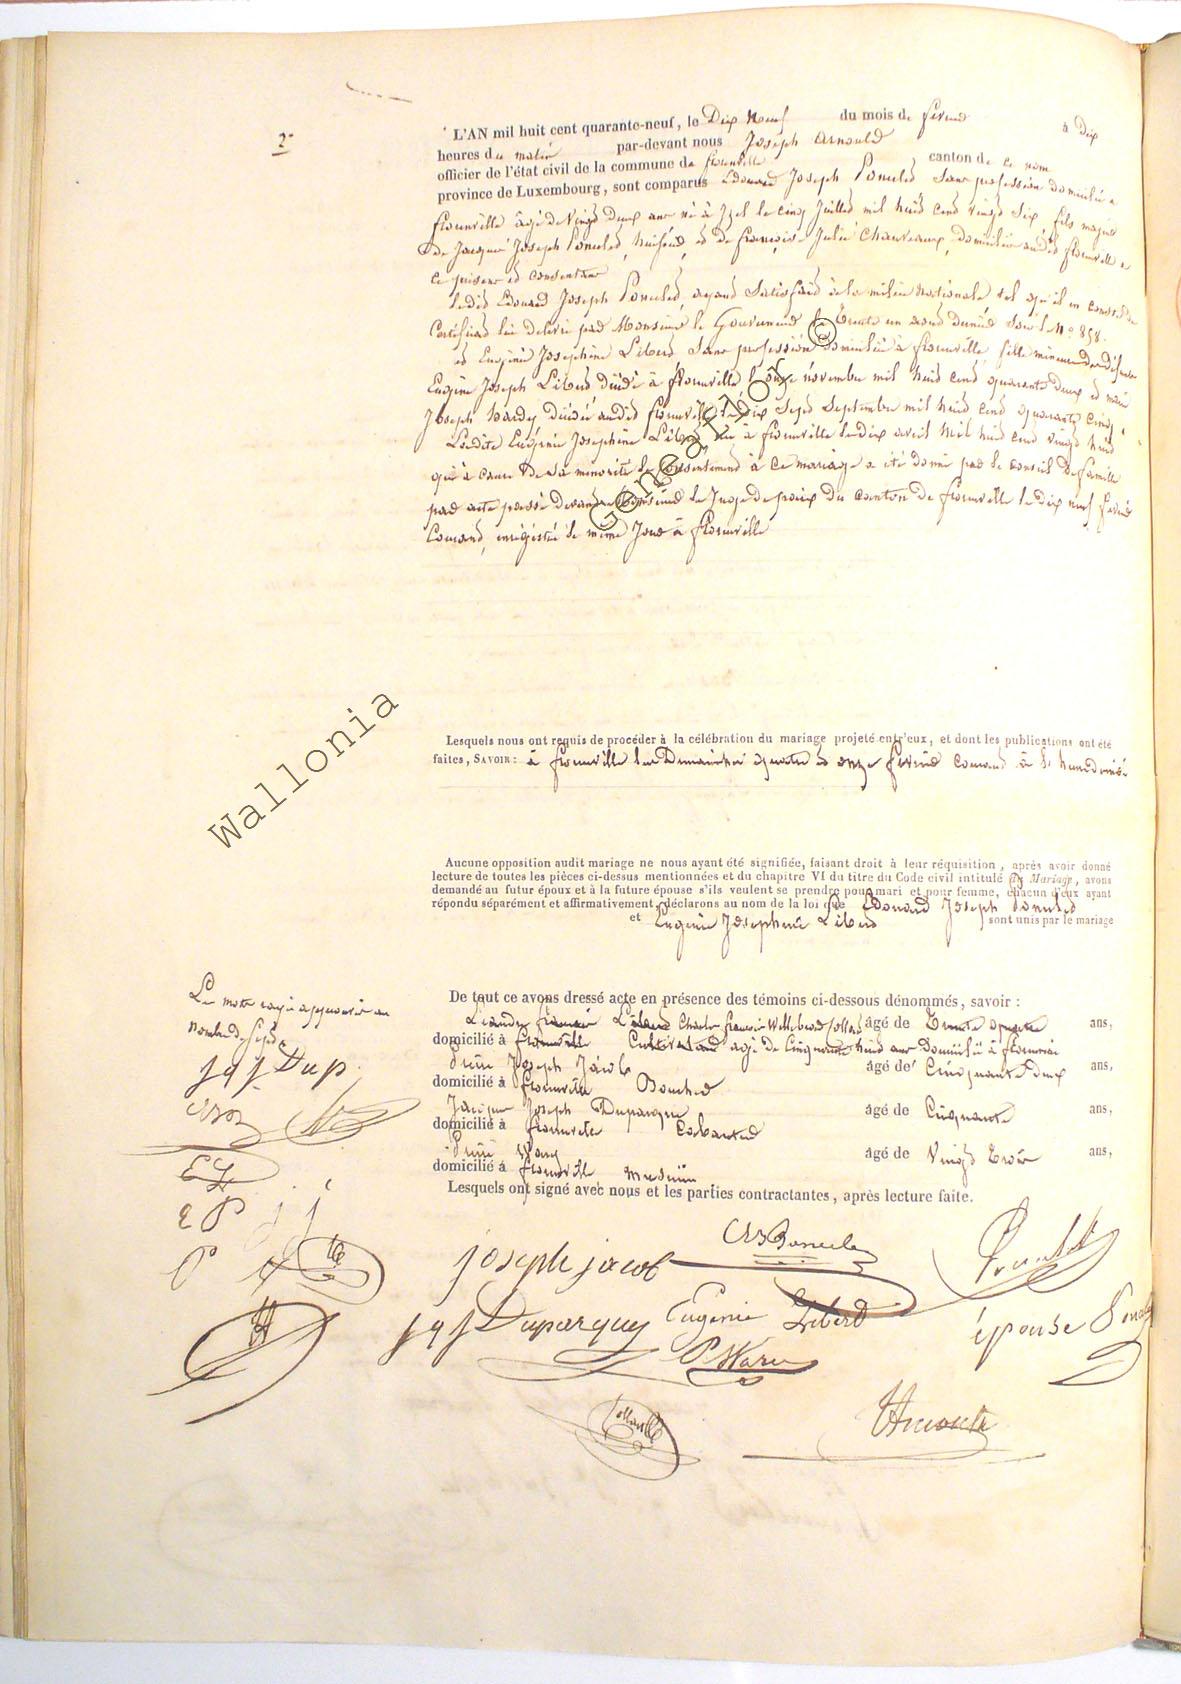 2e
L'AN mil huit cent quarante-neuf, le Dix Neuf du mois de fevrier à Dix
heures du matin par-devant nous Joseph Arnould
officier de l'état civil de la commune de florenville canton de ce nom
province de Luxembourg, sont comparus Edouard Joseph Poncelet Sans profession domicilié a
florenville âgé de vingt deux ans né à Izel le cinq Juillet mil huit cent vingt Six, fils majeur
de Jacques Joseph Poncelet, huissier, et de françoise Julie Chauveaux, domiciliés audit florenville a
ce présens et consentans
ledit Edouard Joseph Poncelet ayant Satisfait à la milice Nationale tel qu'il en conste du
Certificat lui délivré par Monsieur le Gouverneur le Trente un aout dernier Sous le No 858.
et Eugénie Josephine Libert Sans profession domiciliée à florenville, fille mineure des défunts
Eugène Joseph Libert décédé à florenville le onze novembre mil huit cent quarante deux et marie
Joseph hardy décédée audit florenville le dix Sept Septembre mil huit cent quarante cinq.
Ladite Eugénie Josephine Libert née à florenville le dix avril mil huit cent vingt huit
qui à cause de sa minorité le consentement à ce mariage a été donné par le conseil de famille
par acte passé devant Monsieur le Juge de paix du canton de florenville le dix neuf fevrier
Courant, enrégistré le même Jour à florenville
Lesquels nous ont requis de procéder à la célébration du mariage projeté entr'eux, et dont les publications ont été
faites, SAVOIR : à florenville les Dimanches quatre et onze fevrier courant à
Aucune opposition audit mariage ne nous ayant été signifiée, faisant droit à leur réquisition, après avoir donné
lecture de toutes les pièces ci-dessus mentionnées et du chapitre VI du titre du Code civil intitulé du Mariage, avons
demandé au futur époux et à la future épouse s'ils veulent se prendre pour mari et pour femme, chacun d'eux ayant
répondu séparément et affirmativement, déclarons au nom de la loi que Edouard Joseph Poncelet
et Eugénie Josephine Libert sont unis par le mariage
De tout ce avons dressé acte en présence des témoins ci-dessous dénommés, savoir :
Charles françois âgé de Trente quatre ans,
domicilié à florenville Cultivateur agé de Cinquante huit ans Domicilié à florenville
Joseph Jacob âgé de Cinquante deux ans,
domicilié à florenville Boucher
Jacques Joseph Duparque âgé de Cinquante ans,
domicilié à florenville Cabaretier
âgé de Vingt Trois ans,
domicilié à florenville
Lesquels ont signé avec nous et les parties contractantes, après lecture faite.
Les mots rayés approuvés au
nombre de Sept
J J J Dup
E L
E P j j
P
joseph jacob
Poncelet
J J J Duparquy Eugénie Libert épouse Poncelet
Wallonia
Généalogie ©